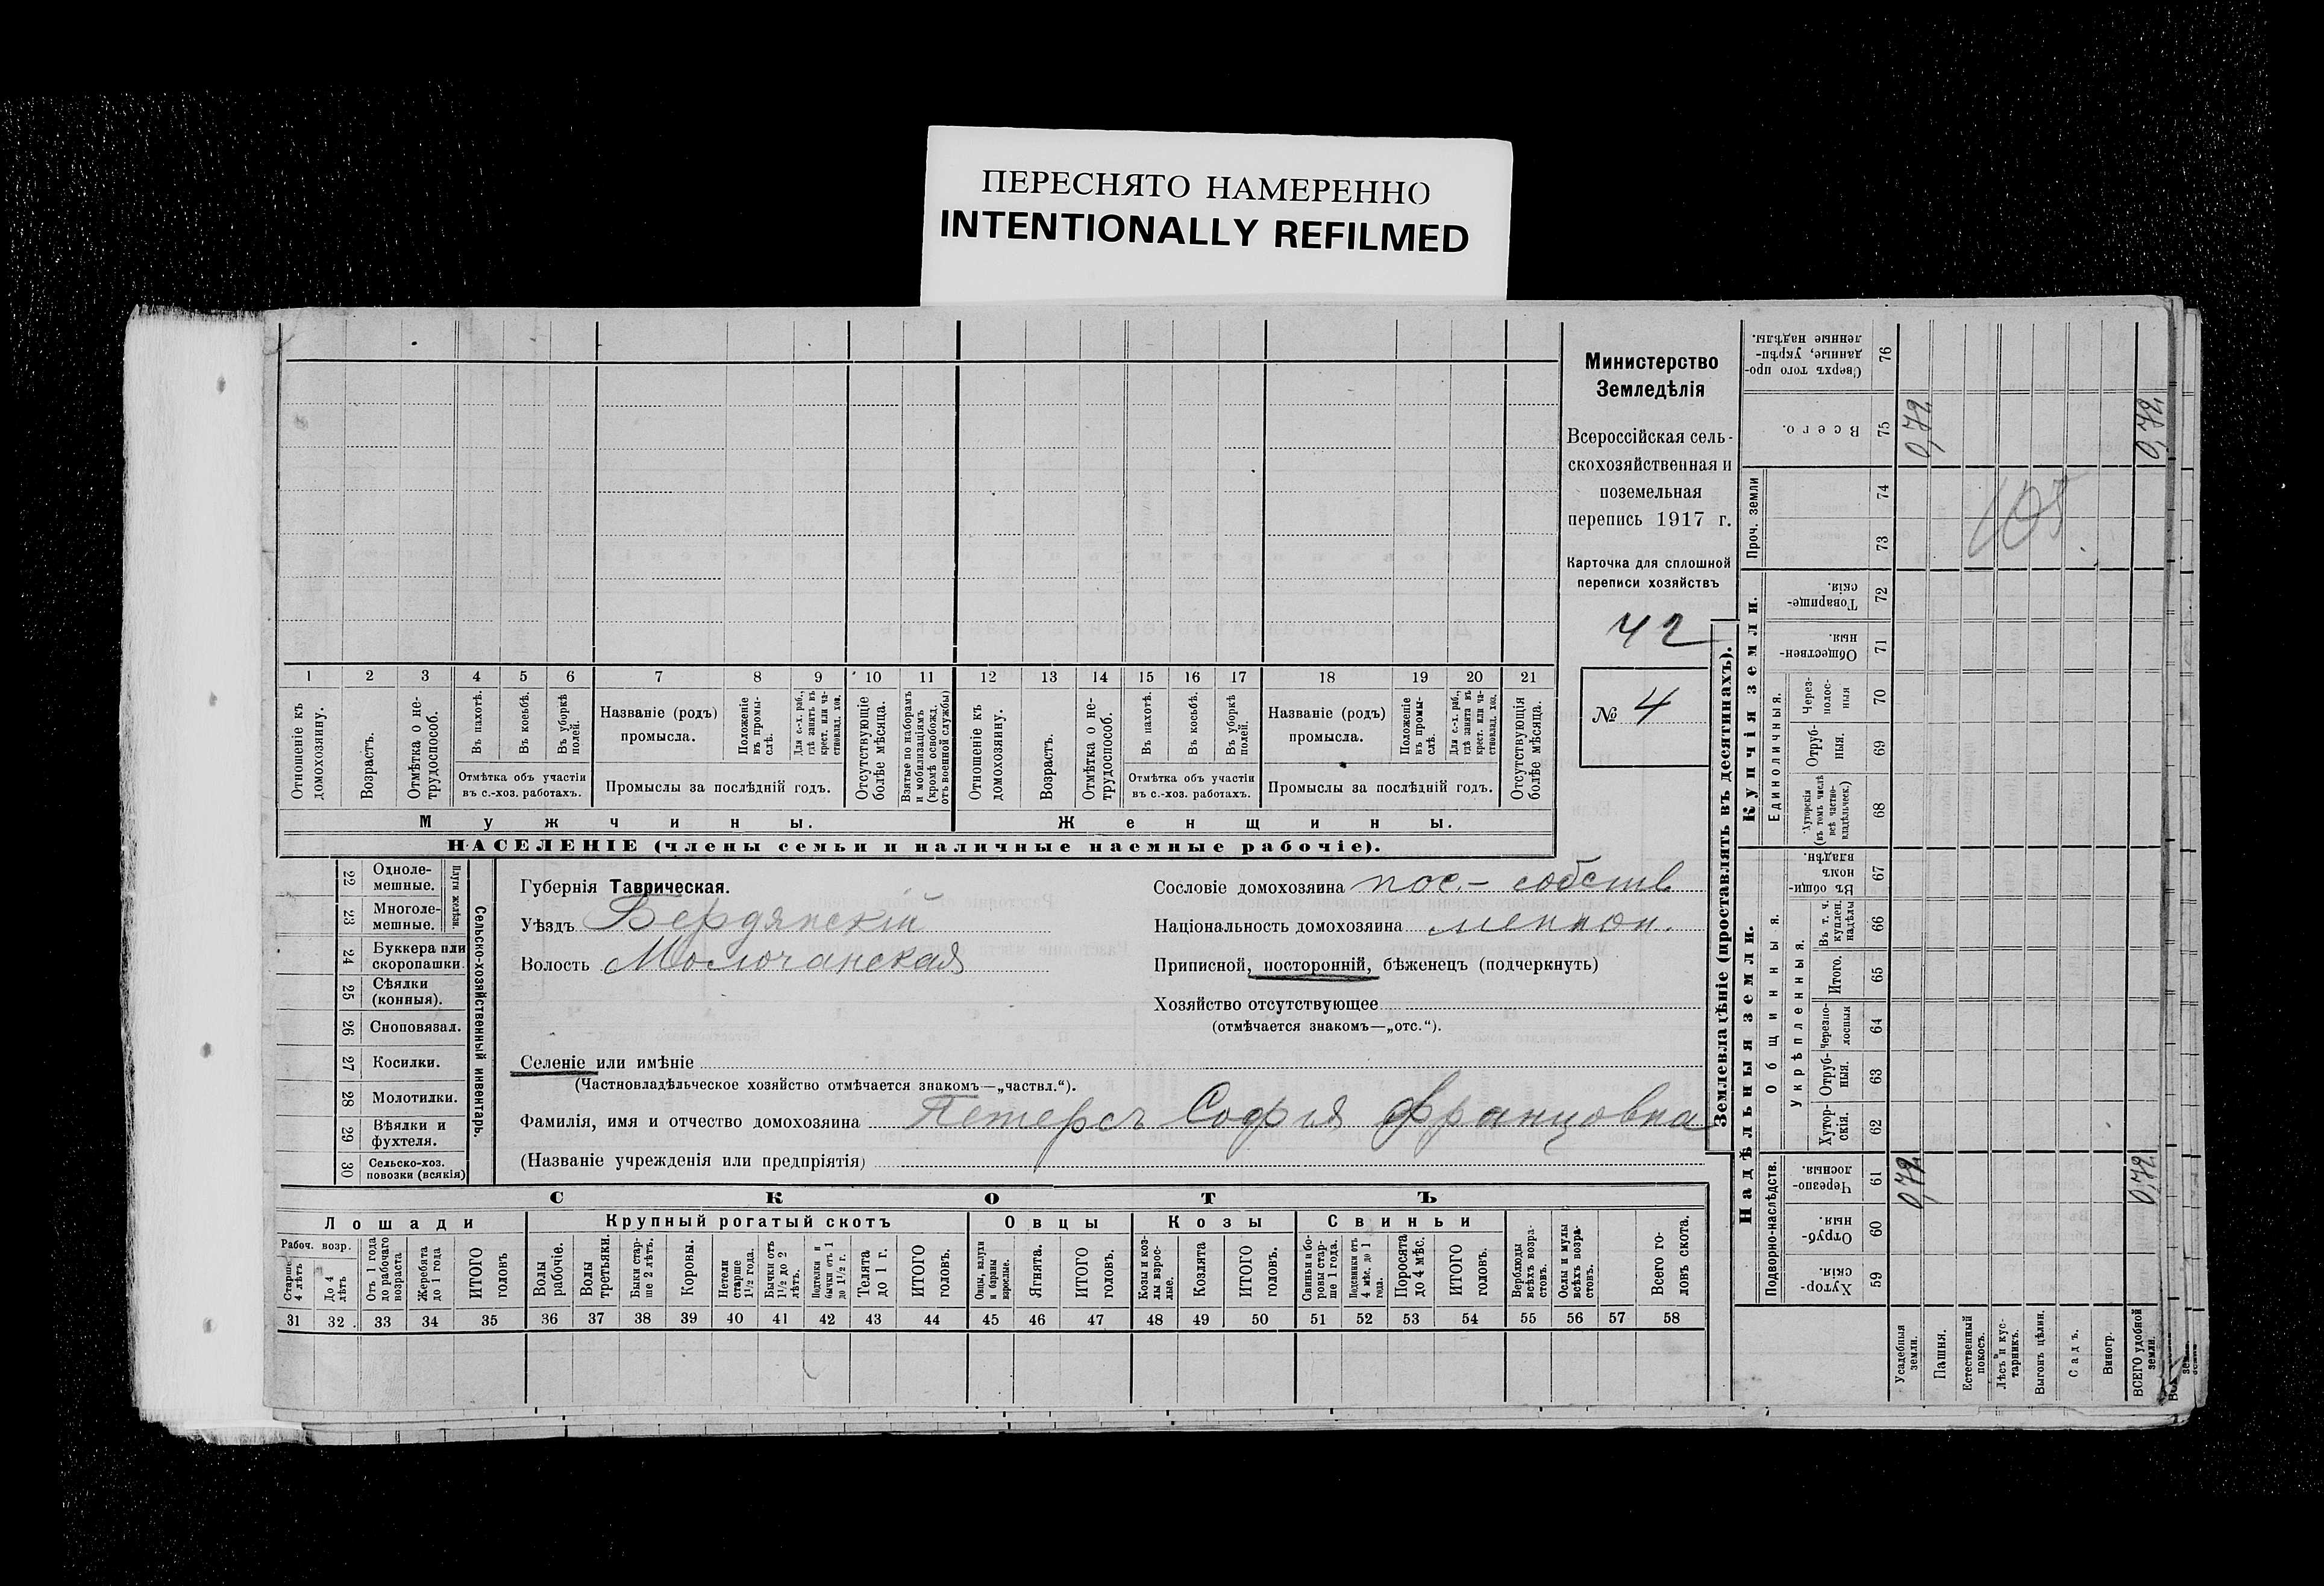 ПЕРЕСНЯТО НАМЕРЕННО
INTENTIONALLY REFILMED
Министерство
Земледѣлія
Всероссійская сель-
скохозяйственная и
поземельная
перепись 1917 г.
Карточка для сплошной
переписи хозяйствъ
42
№ 4
1 2 3 4 5 6 7 8 9 10 11 12 13 14 15 16 17 18 19 20 21
Отношеніе къ домохозяину.
Возрастъ.
Отмѣтка о не-трудоспособ.
Въ пахотѣ.
Въ косьбѣ.
Въ уборкѣ полей.
Отмѣтка объ участіи
въ с.-хоз. работахъ.
Названіе (родъ)
промысла.
Положеніе въ промы-слѣ.
Для с.-х. раб., гдѣ занятъ въ крест. или ча-ствовлад. хоз.
Промыслы за послѣдній годъ.
Отсутствующіе болѣе мѣсяца.
Взятые по наборамъ и мобилизаціямъ (кромѣ освобожд. отъ военной службы)
Отношеніе къ домохозяину.
Возрастъ.
Отмѣтка о не-трудоспособ.
Въ пахотѣ.
Въ косьбѣ.
Въ уборкѣ полей.
Отмѣтка объ участіи
въ с.-хоз. работахъ.
Названіе (родъ)
промысла.
Положеніе въ промы-слѣ.
Для с.-х. раб., гдѣ занята въ крест. или ча-ствовлад. хоз.
Промыслы за послѣдній годъ.
Отсутствующія болѣе мѣсяца.
Мужчины.
Женщины.
НАСЕЛЕНІЕ (члены семьи и наличные наемные рабочіе).
22 Одноле-мешные.
23 Многоле-мешные.
Плуги желѣзн.
24 Буккера или скоропашки.
25 Сѣялки (конныя).
26 Сноповязал.
27 Косилки.
28 Молотилки.
29 Вѣялки и фухтеля.
30 Сельско-хоз. повозки (всякія)
Сельско-хозяйственный инвентарь.
Губернія Таврическая.
Уѣздъ Бердянскій
Волость Молочанская
Сословіе домохозяина пос.- собств
Національность домохозяина меннон.
Приписной, посторонній, бѣженецъ (подчеркнуть)
Хозяйство отсутствующее
(отмѣчается знакомъ—„отс.“).
Селеніе или имѣніе
(Частновладѣльческое хозяйство отмѣчается знакомъ—„частвл.“).
Фамилія, имя и отчество домохозяина Петерсъ Софія Францовна
(Названіе учрежденія или предпріятія)
СКОТЪ
Лошади
Крупный рогатый скотъ
Овцы
Козы
Свиньи
Рабоч. возр.
Старше 4 лѣтъ
До 4 лѣтъ
Отъ 1 года до рабочаго возраста
Жеребята до 1 года
ИТОГО головъ
Волы рабочіе.
Волы третьяки.
Быки стар-ше 2 лѣтъ.
Коровы.
Нетели старше 1½ года.
Бычки отъ 1½ до 2 лѣтъ.
Подтелки и бычки отъ 1 до 1½ г.
Телята до 1 г.
ИТОГО головъ.
Овцы, валухи и бараны взрослые.
Ягнята.
ИТОГО головъ.
Козы и коз-лы взрос-лые.
Козлята
ИТОГО головъ.
Свиньи и бо-ровы стар-ше 1 года.
Подсвинки отъ 4 мѣс. до 1 года.
Поросята до 4 мѣс.
ИТОГО головъ.
Верблюды всѣхъ возра-стовъ.
Ослы и мулы всѣхъ возра-стовъ.
Всего го-ловъ скота.
31 32 33 34 35 36 37 38 39 40 41 42 43 44 45 46 47 48 49 50 51 52 53 54 55 56 57 58
Землевладѣніе (проставлять въ десятинахъ).
Надѣльныя земли.
Купчія земли.
Проч. земли
Подворно-наслѣдств.
Общинныя.
Укрѣпленныя.
Единоличныя.
Хутор-скія. 59
Отруб-ныя. 60
Черезпо-лосныя. 61
Хутор-скія. 62
Отруб-ныя. 63
Черезпо-лосныя 64
Итого. 65
Въ т. ч. куплен. надѣлы 66
Въ общин-номъ владѣн. 67
Хуторскія (въ томъ числѣ всѣ частно-владѣльческ.) 68
Отруб-ныя. 69
Через-полос-ныя 70
Обществен-ныя. 71
Товарище-скія. 72
73 74
Всего. 75
Сверхъ того про-данные, укрѣп-ленные надѣлы. 76
Усадебныя земли.
Пашня.
Естественный покосъ.
Лѣсъ и кус-тарникъ.
Выгонъ цѣлин.
Садъ.
Виногр.
ВСЕГО удобной земли.
0,72
0,72
0,72
0,72
105